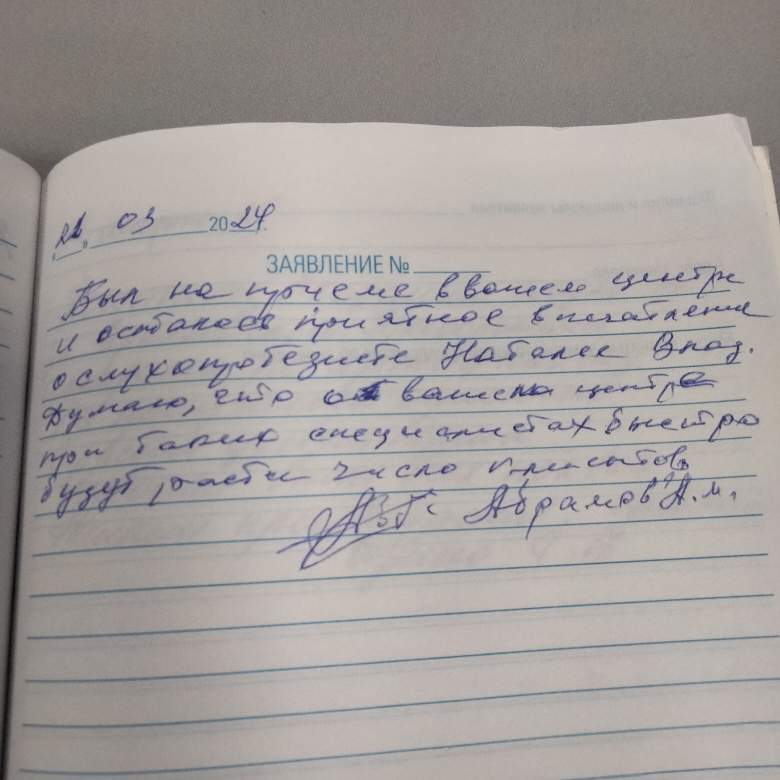 22 03 2024.
ЗАЯВЛЕНИЕ №
Был на приеме в вашем центре
и осталось приятное впечатление
о слухопротезисте Наталье Влад.
Думаю, что о вашем центре
при таких специалистах быстро
будут расти число клиентов
Абрамов А.М.